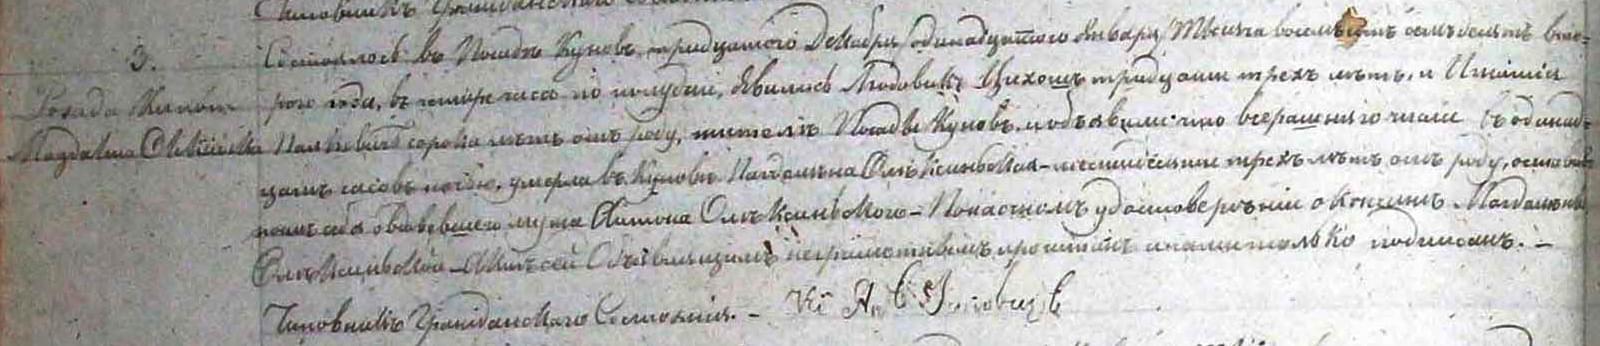 Чиновникъ Гражданскаго
3. Состоялось въ Посадѣ Куновъ, тридцатого Декабря/одинадцатого Января/Тысяча восемьсотъ семьдесятъ вто=
Posada Kunow рого года, въ четыре часа по полудни, Явились Людовикъ Цихошъ тридцати трехъ лѣтъ, и Игнатій
Magdalena Oleksińska сорока лѣтъ отъ роду, жители Посады Куновъ, и объявили что вчерашняго числа въ одинад=
цать часовъ ночью, умерла въ Куновѣ Магдалена Олексиньская – шестидесяти трехъ лѣтъ отъ роду, оставивъ
послѣ себя овдовѣвшего мужа Антона Олексиньского – По настномъ удостовѣреніи о кончинѣ Магдалены
Олексиньской – Актъ сей Объявляющимъ неграмотнымъ прочитанъ и нами только подписанъ. –
Чиновникъ Гражданского Состоянія. – Кс А.